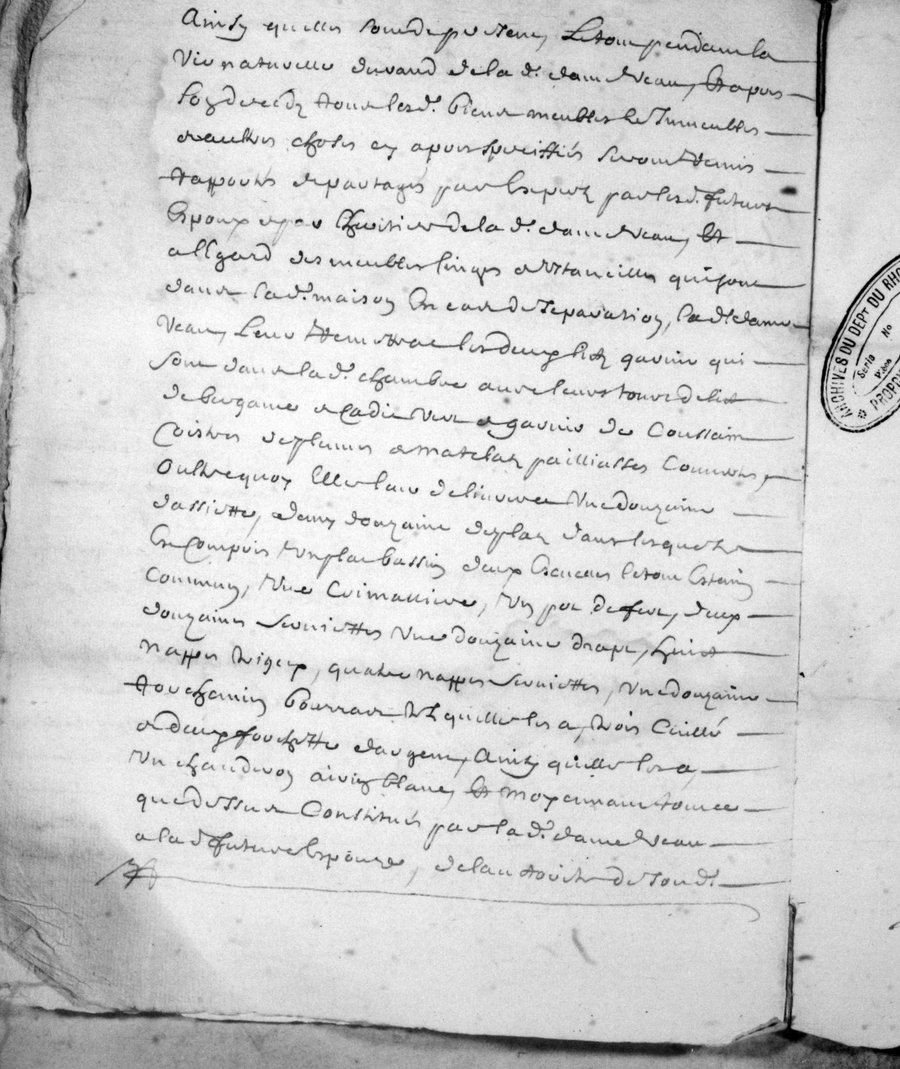 Ainsy quelles sont de presant, Le tout pendant la
vie naturelle durand de la d.e dame Veau, Et apres
son deceds tous lesd. biens meubles Et Immeubles
et aultres choses cy apres speciffiés seront remis
rapportés et partagés par Esgales par lesd. futurs
Espoux et les heritiers de la d.e dame Veau, Et
a lEgard des meubles linges et Ustancilles qui sont
dans la d.e maison En cas de separation, la d.e dame
Veau, Leur remettra les deux litz garnis qui
sont dans la d.e chambre avec leurs tours de lict
de bergame et cadis vert et garnis de Coussains
Coistres de plumes et matelatz pailliasses Couvertes,
oultre quoy Elle leur delivrera Une douzaine
d'assiettes, demy douzaine de platz dans lesquels
En Compris Un plat bassin deux Escuelles le tout Estaing
commung, Une Crimalliere, Un pot de fer, deux
douzaines serviettes Une douzaine draps, huict
nappes, quatre nappes serviettes, Une douzaine
touchemin bourrat tel quelle les a, trois Cuillé
et deux fourchette dargent, Ainsy quelle les a,
Un chaudron airin blanc, Et moyennant tout ce
que dessus Constitués par la d.e dame Veau
a la d. future Espouze, de lauthorité de sond.
ARCHIVES DU DEPT DU RHO
Série
No
Pièce
PROPR